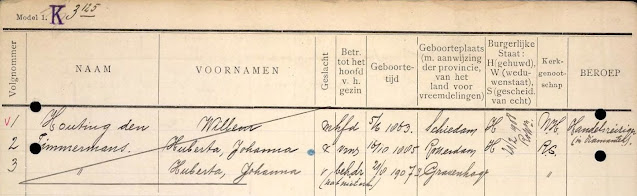 Model 1. K 3145
Volgnommer
NAAM
VOORNAMEN
Geslacht
Betr. tot het hoofd v. h. gezin
Geboorte-tijd
Geboorteplaats (m. aanwijzing der provincie, van het land voor vreemdelingen)
Burgerlijke Staat: H (gehuwd), W (weduwenstaat), S (gescheid. van echt)
Kerk-genoot-schap
BEROEP
v 1 Houting den Willem m hfd 5/6 1883. Schiedam H N.H. Handelsreiziger
2 Timmermans. Huberta, Johanna v vrw 10 1885 Rotterdam H R.C.
3 Huberta, Johanna v 1907 Gravenhage